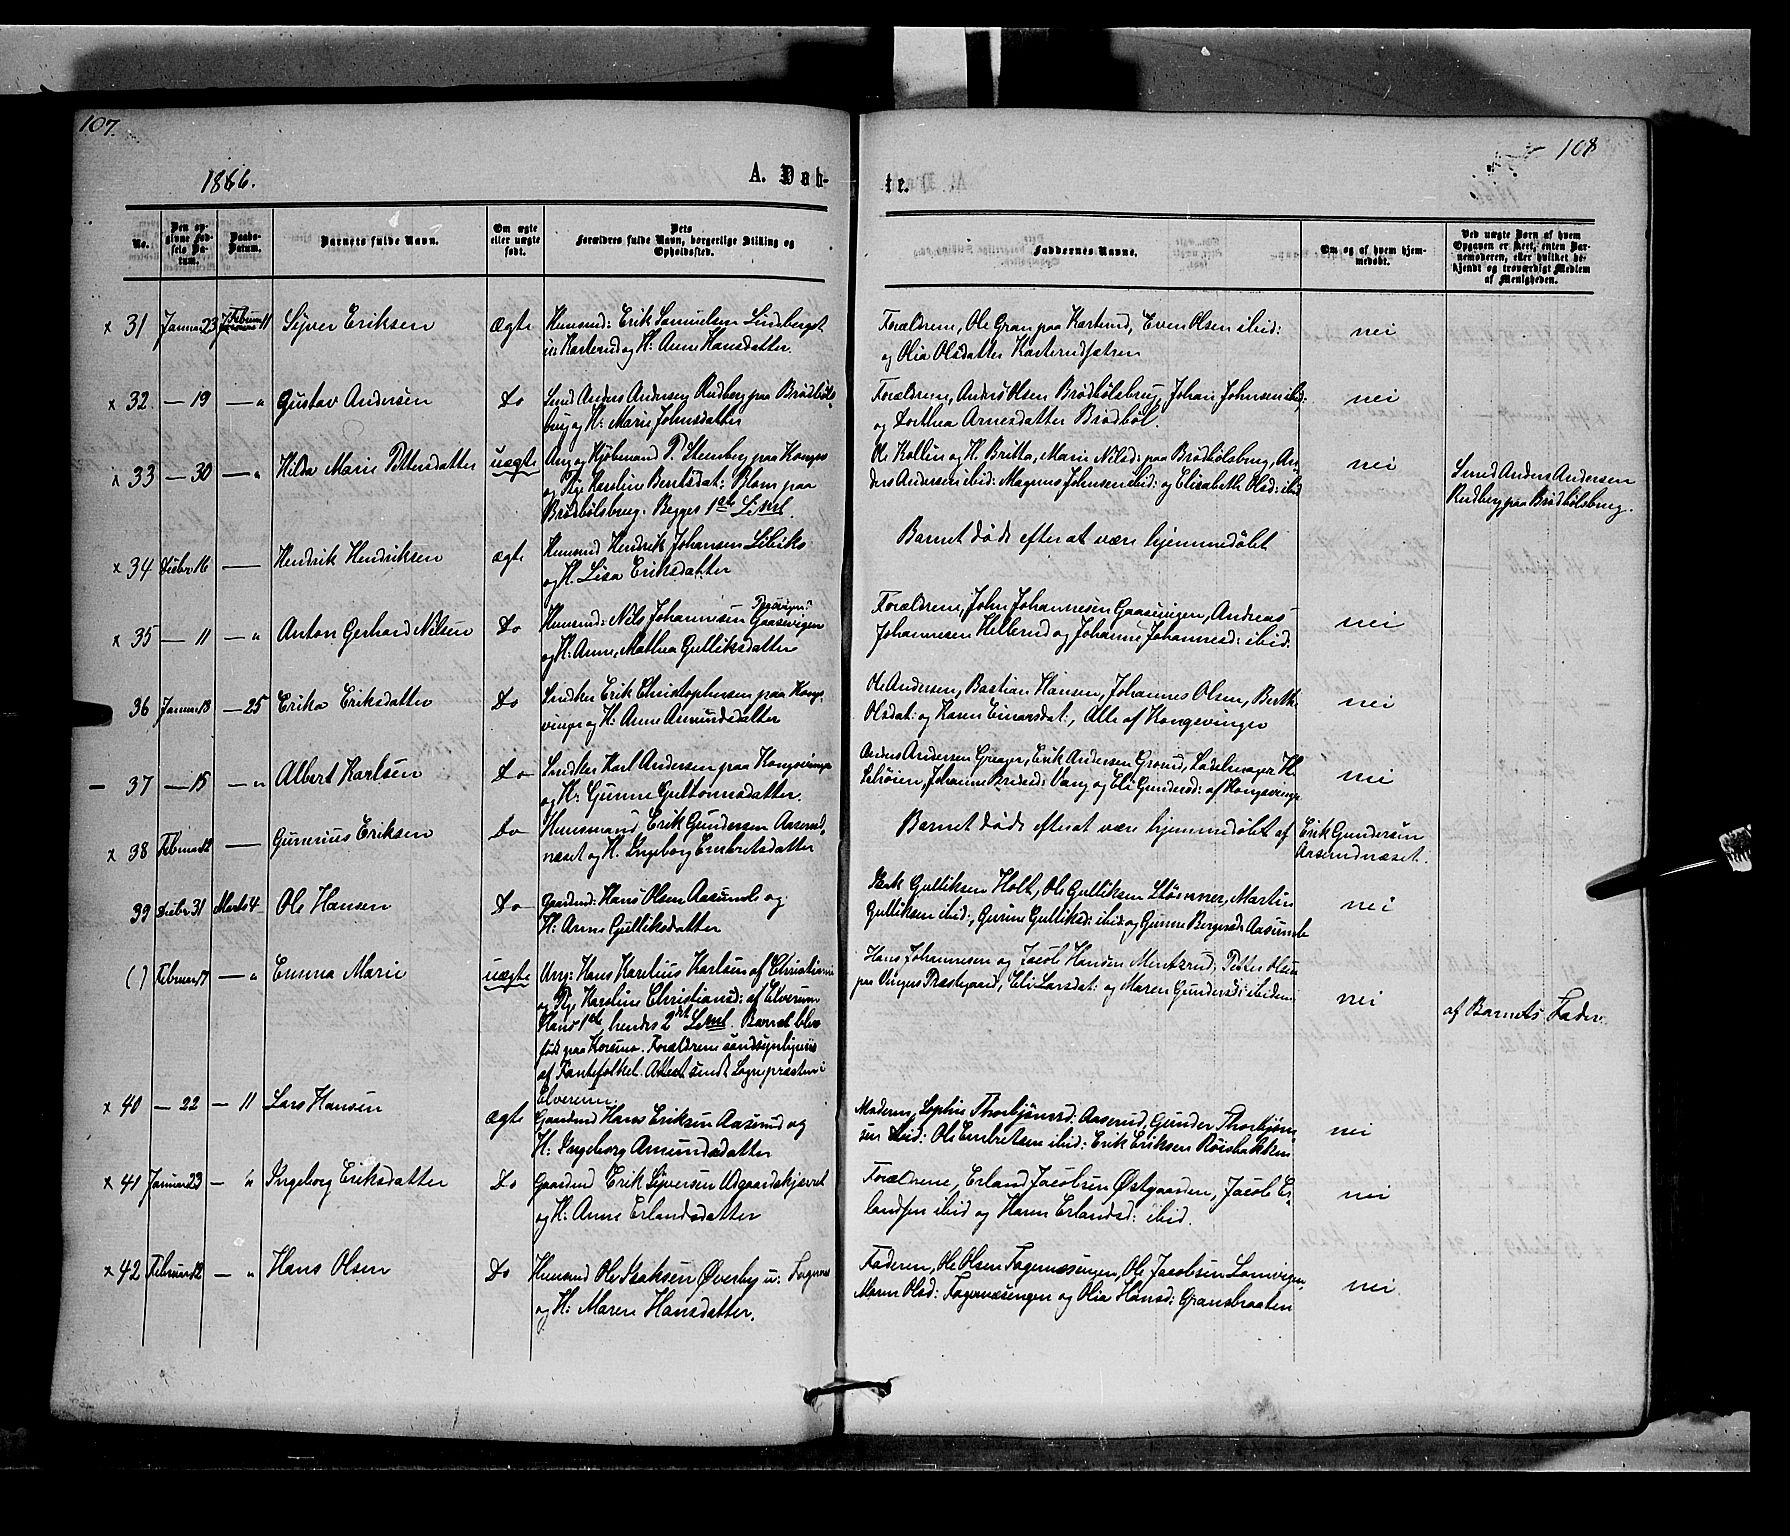 107.
108
1866.
A. Døb-
te.
No.
Den opgivne Fødsels Datum.
Daabs-Datum.
Barnets fulde Navn.
Om ægte eller uægte født.
Dets Forældres fulde Navn, borgerlige Stilling og Opholdssted.
Faddernes Navne.
Om og af hvem hjemmedøbt.
Ved uægte Børn af hvem Opgaven er skeet, enten Barnemoderen, eller hvilket bekjendt og troværdigt Medlem af Menigheden.
x 31 Januar 23 Februar 11 Syver Eriksen ægte Huusmd: Erik Samuelsen Lindberget
u: Kasterud og H: Anne Hansdatter.
Forældrene, Ole Gran paa Kasterud, Even Olsen ibid:
og Olia Olsdatter Kasterudsætren
nei
x 32. — 19 — " Gustav Andersen Do Smed Anders Andersen Rudberg paa Brødbøls-
brug og H: Marie Johnsdatter
Forældrene, Anders Olsen Brødbølsbrug, Johan Johnsen ibid:
og Dorthea Arnesdatter Brødbøl.
nei
x 33 — 30 — " Hilda Marie Pettersdatter uægte Ung Kjøbmand P. Stenberg paa Kongsv
og Pige Karolin Bentsdat: Blom paa
Brødbølsbrug. Begges 1ste Leiml.
Ole Kollin og H. Britta, Marie Nilsd: paa Brødbølsbrug, An-
ders Andersen ibid: Magnus Johnsen ibid: og Elisabeth Olsd: ibid
nei
Smed Anders Andersen
Rudberg paa Brødbølsbrug.
x 34 Decbr 16 — Hendrik Hendriksen ægte Huusmd Hendrik Johansen
og H. Lisa Eriksdatter
Barnet døde efter at være hjemmedøbt
x 35 — 11 — " Anton Gerhard Nilsen Do Huusmd: Nils Johannesen Gaasevigen
og H: Anne Mathea Gulliksdatter
Forældrene, John Johannesen Gaasevigen, Andreas
Johannesen Hellerud og Johanne Johannesd: ibid:
nei
36 Januar 13 — 25 Erika Eriksdatter Do Erik Christophersen paa Kongs-
vinger og H: Anne Amundsdatter
Ole Andersen, Bastian Hansen, Johannes Olsen, Berthe
Olsdat: og Karen Einarsdat:, Alle af Kongsvinger
nei
— 37 — 15 — " Albert Karlsen Do Karl Andersen paa Kongsvinger
og H: Gunne Guttormsdatter.
Anders Andersen Erik Andersen
Johanne Vang og Eli Gundersd: af Kongsvinger
nei
x 38 Februar 12 — Gunerius Eriksen Do Huusmand, Erik Gundersen Aaserud-
næset og H. Ingeborg Embretsdatter
Barnet døde efter at være hjemmedøbt af
Erik Gundersen
Aaserudnæset.
39 Decbr 31 Marts 4 Ole Hansen Do Gaardmd: Hans Olsen Aasunde og
H: Anne Gulliksdatter
Gulliksen Holt, Ole Gulliksen Martin
Gulliksen ibid:, Gunine Gulliksd: ibid og Gunne Aasunde
nei
( ) Februar 17 — " Emma Marie uægte Ung: Hans Karelius Karlsen af Christiania
og Pige Karoline Christiansd: af Elverum
Hans 1ste, hendes 2det Leiml. Barnet blev
født paa Korsmo. Forældrene sandsynligviis
af Fantefolket. Attest sendt Sognepræsten i
Elverum.
Hans Johannesen og Jacob Hansen Petter Olsen
paa Vinger Præstegaard, Eli Larsdat: og Maren Gundersd: ibidem
nei
af Barnets Fader.
x 40 — 22 — 11 Lars Hansen ægte Gaardmd Hans Eriksen Aaserud og
H: Ingeborg Amundsdatter
Moderen, Sophie Thorbjørnsd: Aaserud, Gunder Thorbjørn-
sen ibid: Ole Embretsen ibid: Erik Eriksen Røisbakken
nei
x 41 Januar 23 — " Ingeborg Eriksdatter Do Gaardmd Erik Syversen Udgaardskjæret
og H: Anne Erlandsdatter
Forældrene, Erland Jacobsen Østgaarden, Jacob Er-
landsen ibid og Karen Erlandsd: ibid.
nei
x 42 Februar 12 — " Hans Olsen Do Huusmd Ole Isaksen Øverby u: Fagernes
og H: Maren Hansdatter.
Faderen, Ole Olsen Fagernesengen, Ole Jacobsen
Maren Olsd: Fagernesengen og Olia Hansd: Gransbraaten
nei.